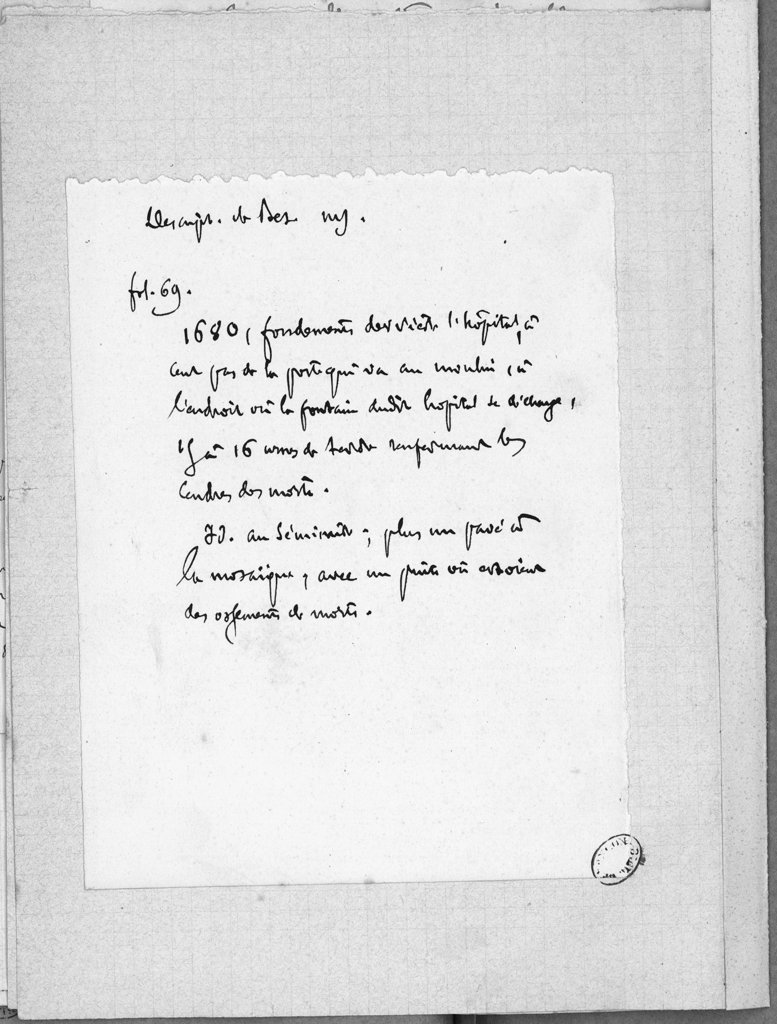 Descript. de Bes. ms.
fol. 69.
1680, fondements derrière l'hôpital, à
cent pas de la porte qui va au moulin, à
l'endroit où la fontaine dudit hôpital se décharge,
il y a 16 urnes de terre renfermant les
cendres des morts.
Id. au Séminaire; plus un pavé à
la mosaïque, avec un puits où estoient
des ossements de morts.